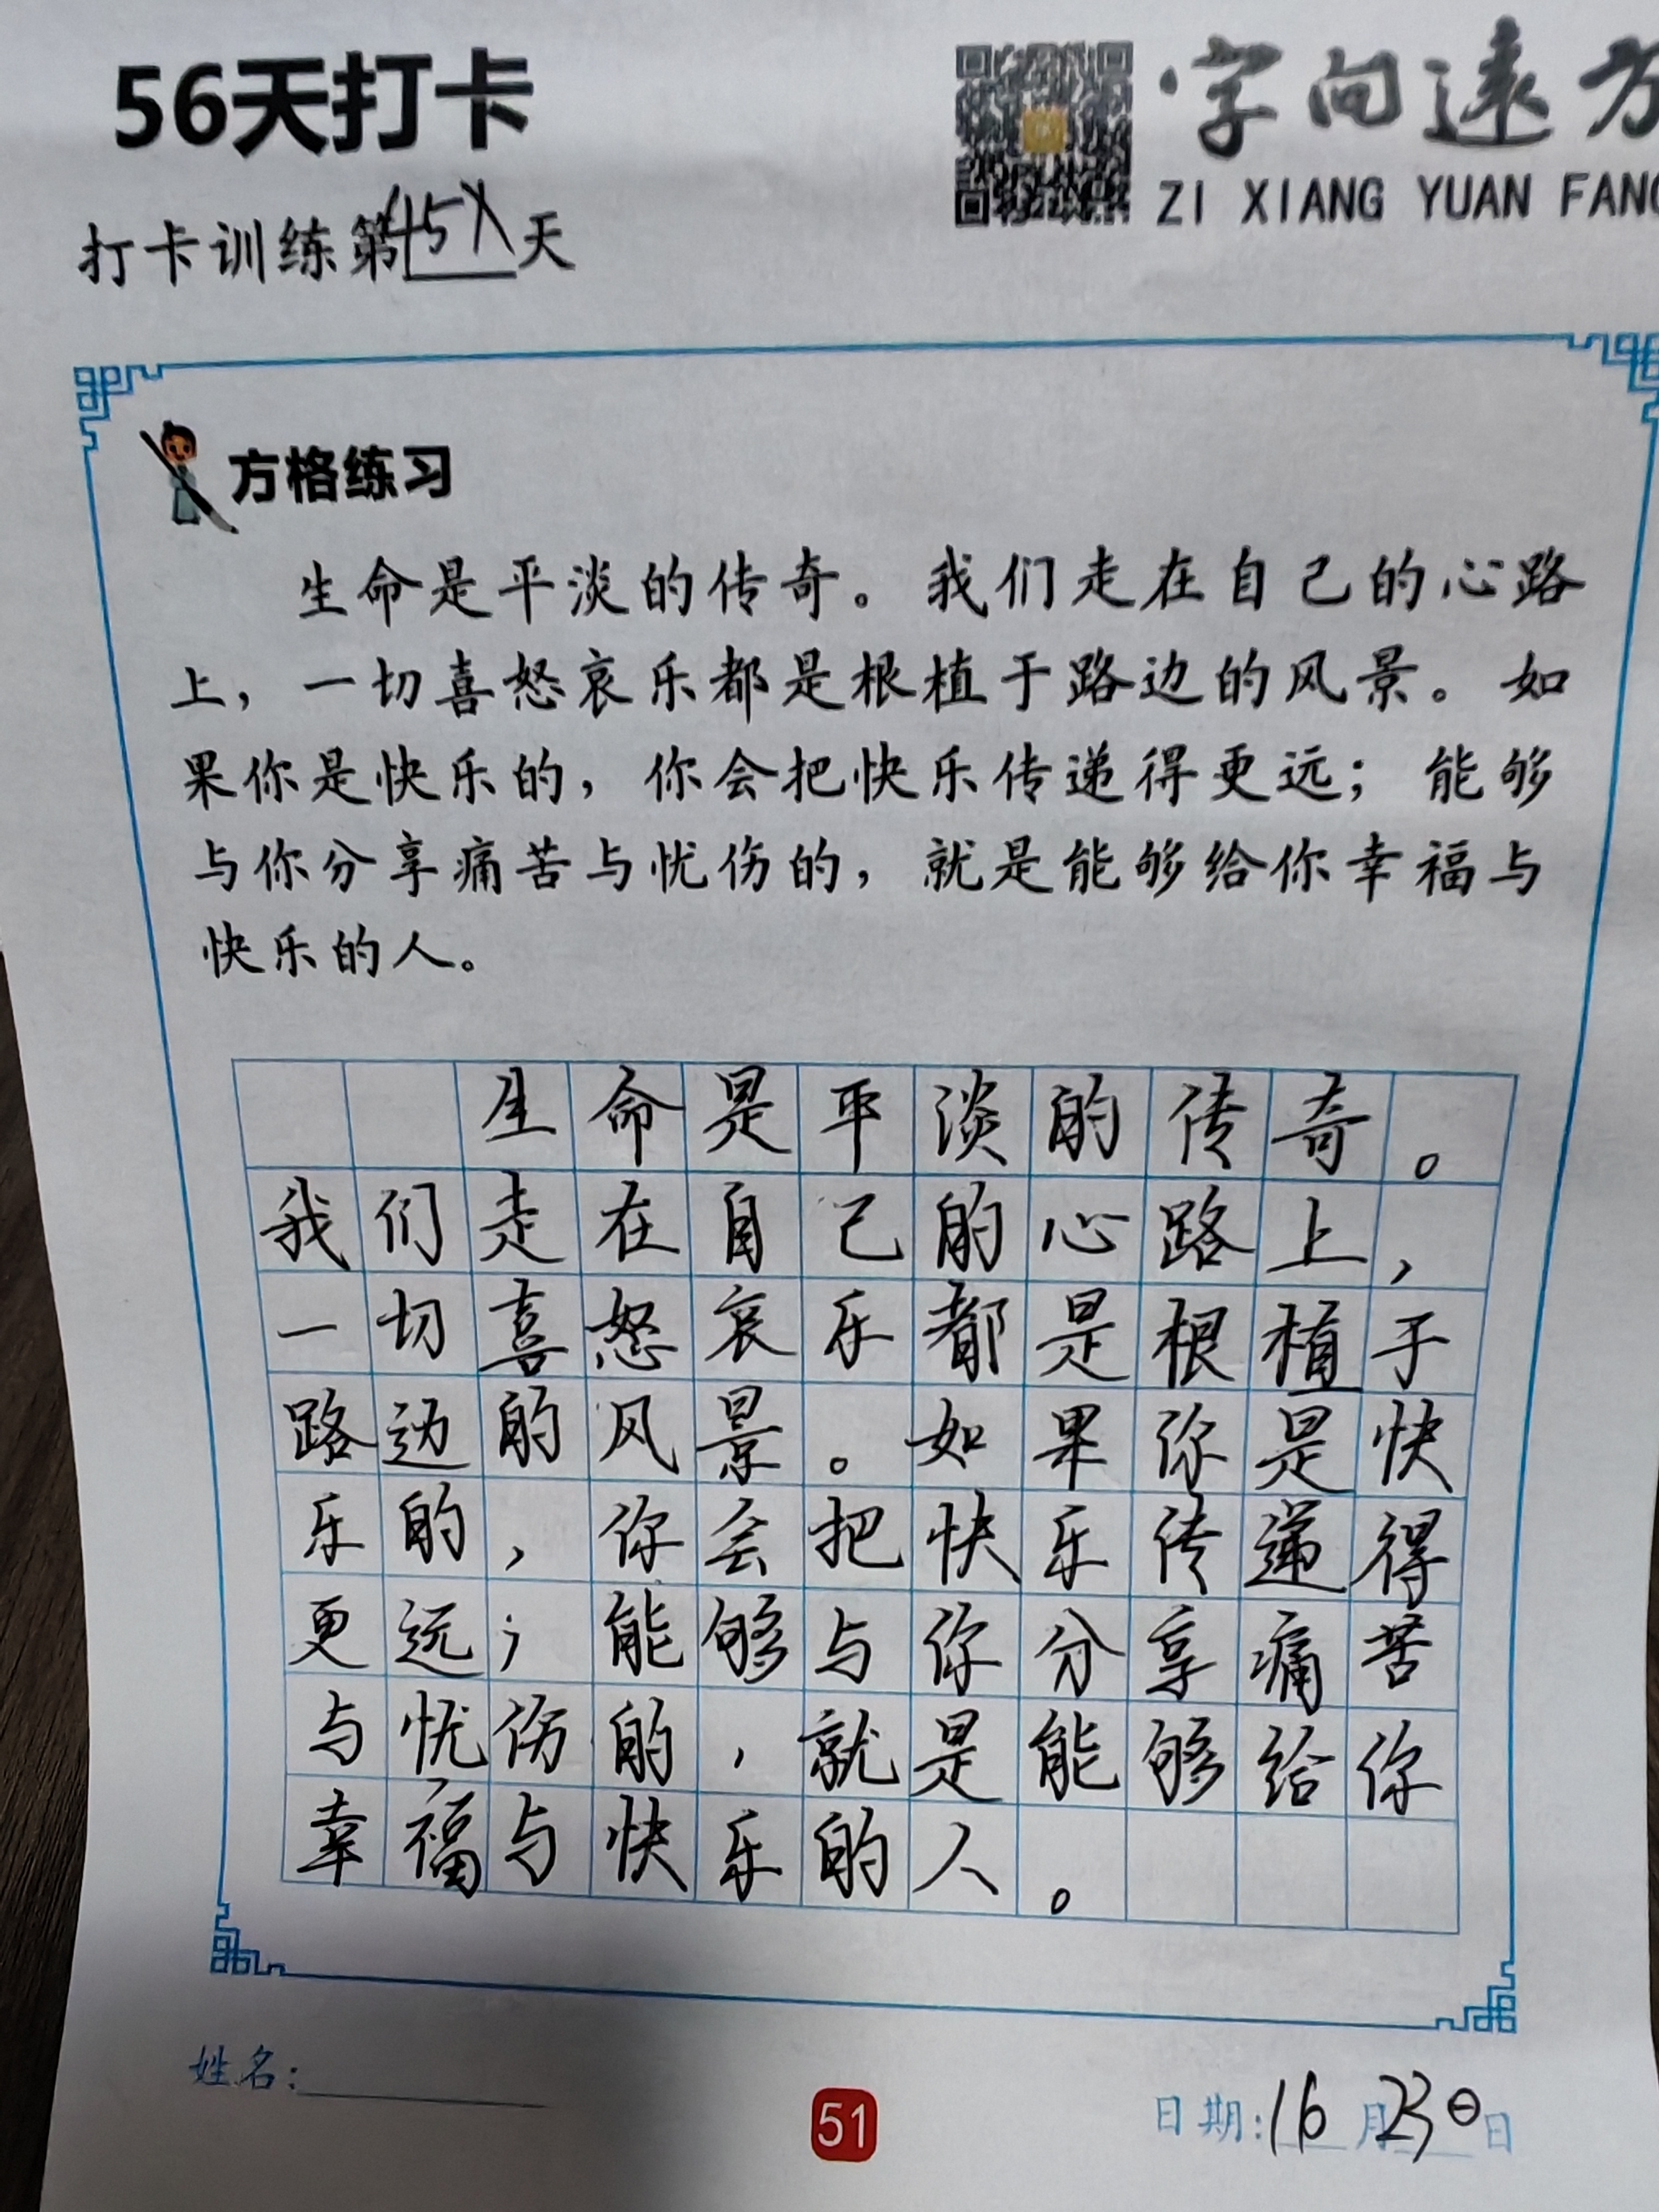 56天打卡
字向远方
ZI XIANG YUAN FANG
打卡训练第45天
方格练习
生命是平淡的传奇。我们走在自己的心路
上，一切喜怒哀乐都是根植于路边的风景。如
果你是快乐的，你会把快乐传递得更远；能够
与你分享痛苦与忧伤的，就是能够给你幸福与
快乐的人。
生命是平淡的传奇。
我们走在自己的心路上，
一切喜怒哀乐都是根植于
路边的风景。如果你是快
乐的，你会把快乐传递得
更远；能够与你分享痛苦
与忧伤的，就是能够给你
幸福与快乐的人。
姓名：
51
日期：16月23日